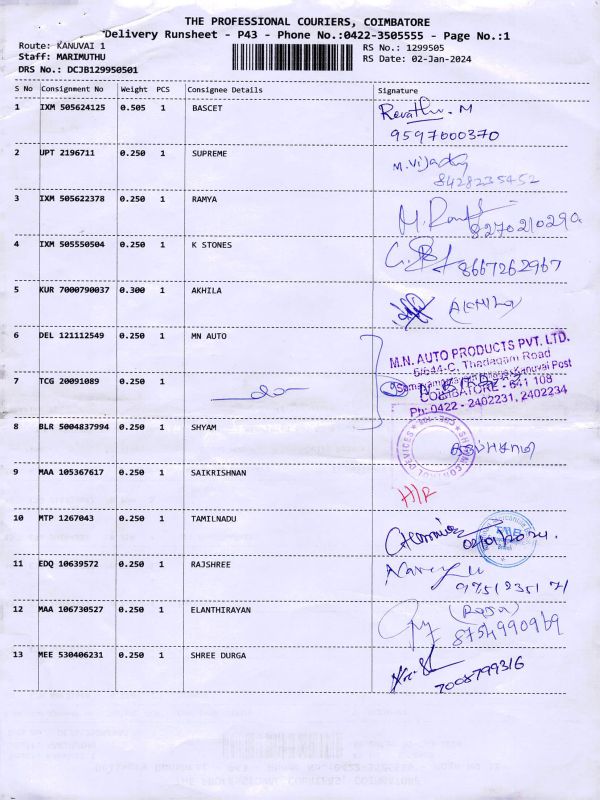 THE PROFESSIONAL COURIERS, COIMBATORE
Delivery Runsheet - P43 - Phone No.:0422-3505555 - Page No.:1
Route: KANUVAI 1
RS No.: 1299505
Staff: MARIMUTHU
RS Date: 02-Jan-2024
DRS No.: DCJB129950501
S No Consignment No Weight PCS Consignee Details Signature
1 IXM 505624125 0.505 1 BASCET Revathi. M
9597000370
2 UPT 2196711 0.250 1 SUPREME
8428235452
3 IXM 505622378 0.250 1 RAMYA
8270210290
4 IXM 505550504 0.250 1 K STONES 8667262967
5 KUR 7000790037 0.300 1 AKHILA
6 DEL 121112549 0.250 1 MN AUTO
M.N. AUTO PRODUCTS PVT. LTD.
6/644-C, Thadagam Road
Kanuvai Post
COIMBATORE - 641 108
Ph: 0422 - 2402231, 2402234
7 TCG 20091089 0.250 1
8 BLR 5004837994 0.250 1 SHYAM
9 MAA 105367617 0.250 1 SAIKRISHNAN
H/R
10 MTP 1267043 0.250 1 TAMILNADU
02/01/2024.
11 EDQ 10639572 0.250 1 RAJSHREE
12 MAA 106730527 0.250 1 ELANTHIRAYAN
(Raja)
8754990969
13 MEE 530406231 0.250 1 SHREE DURGA
7008799316